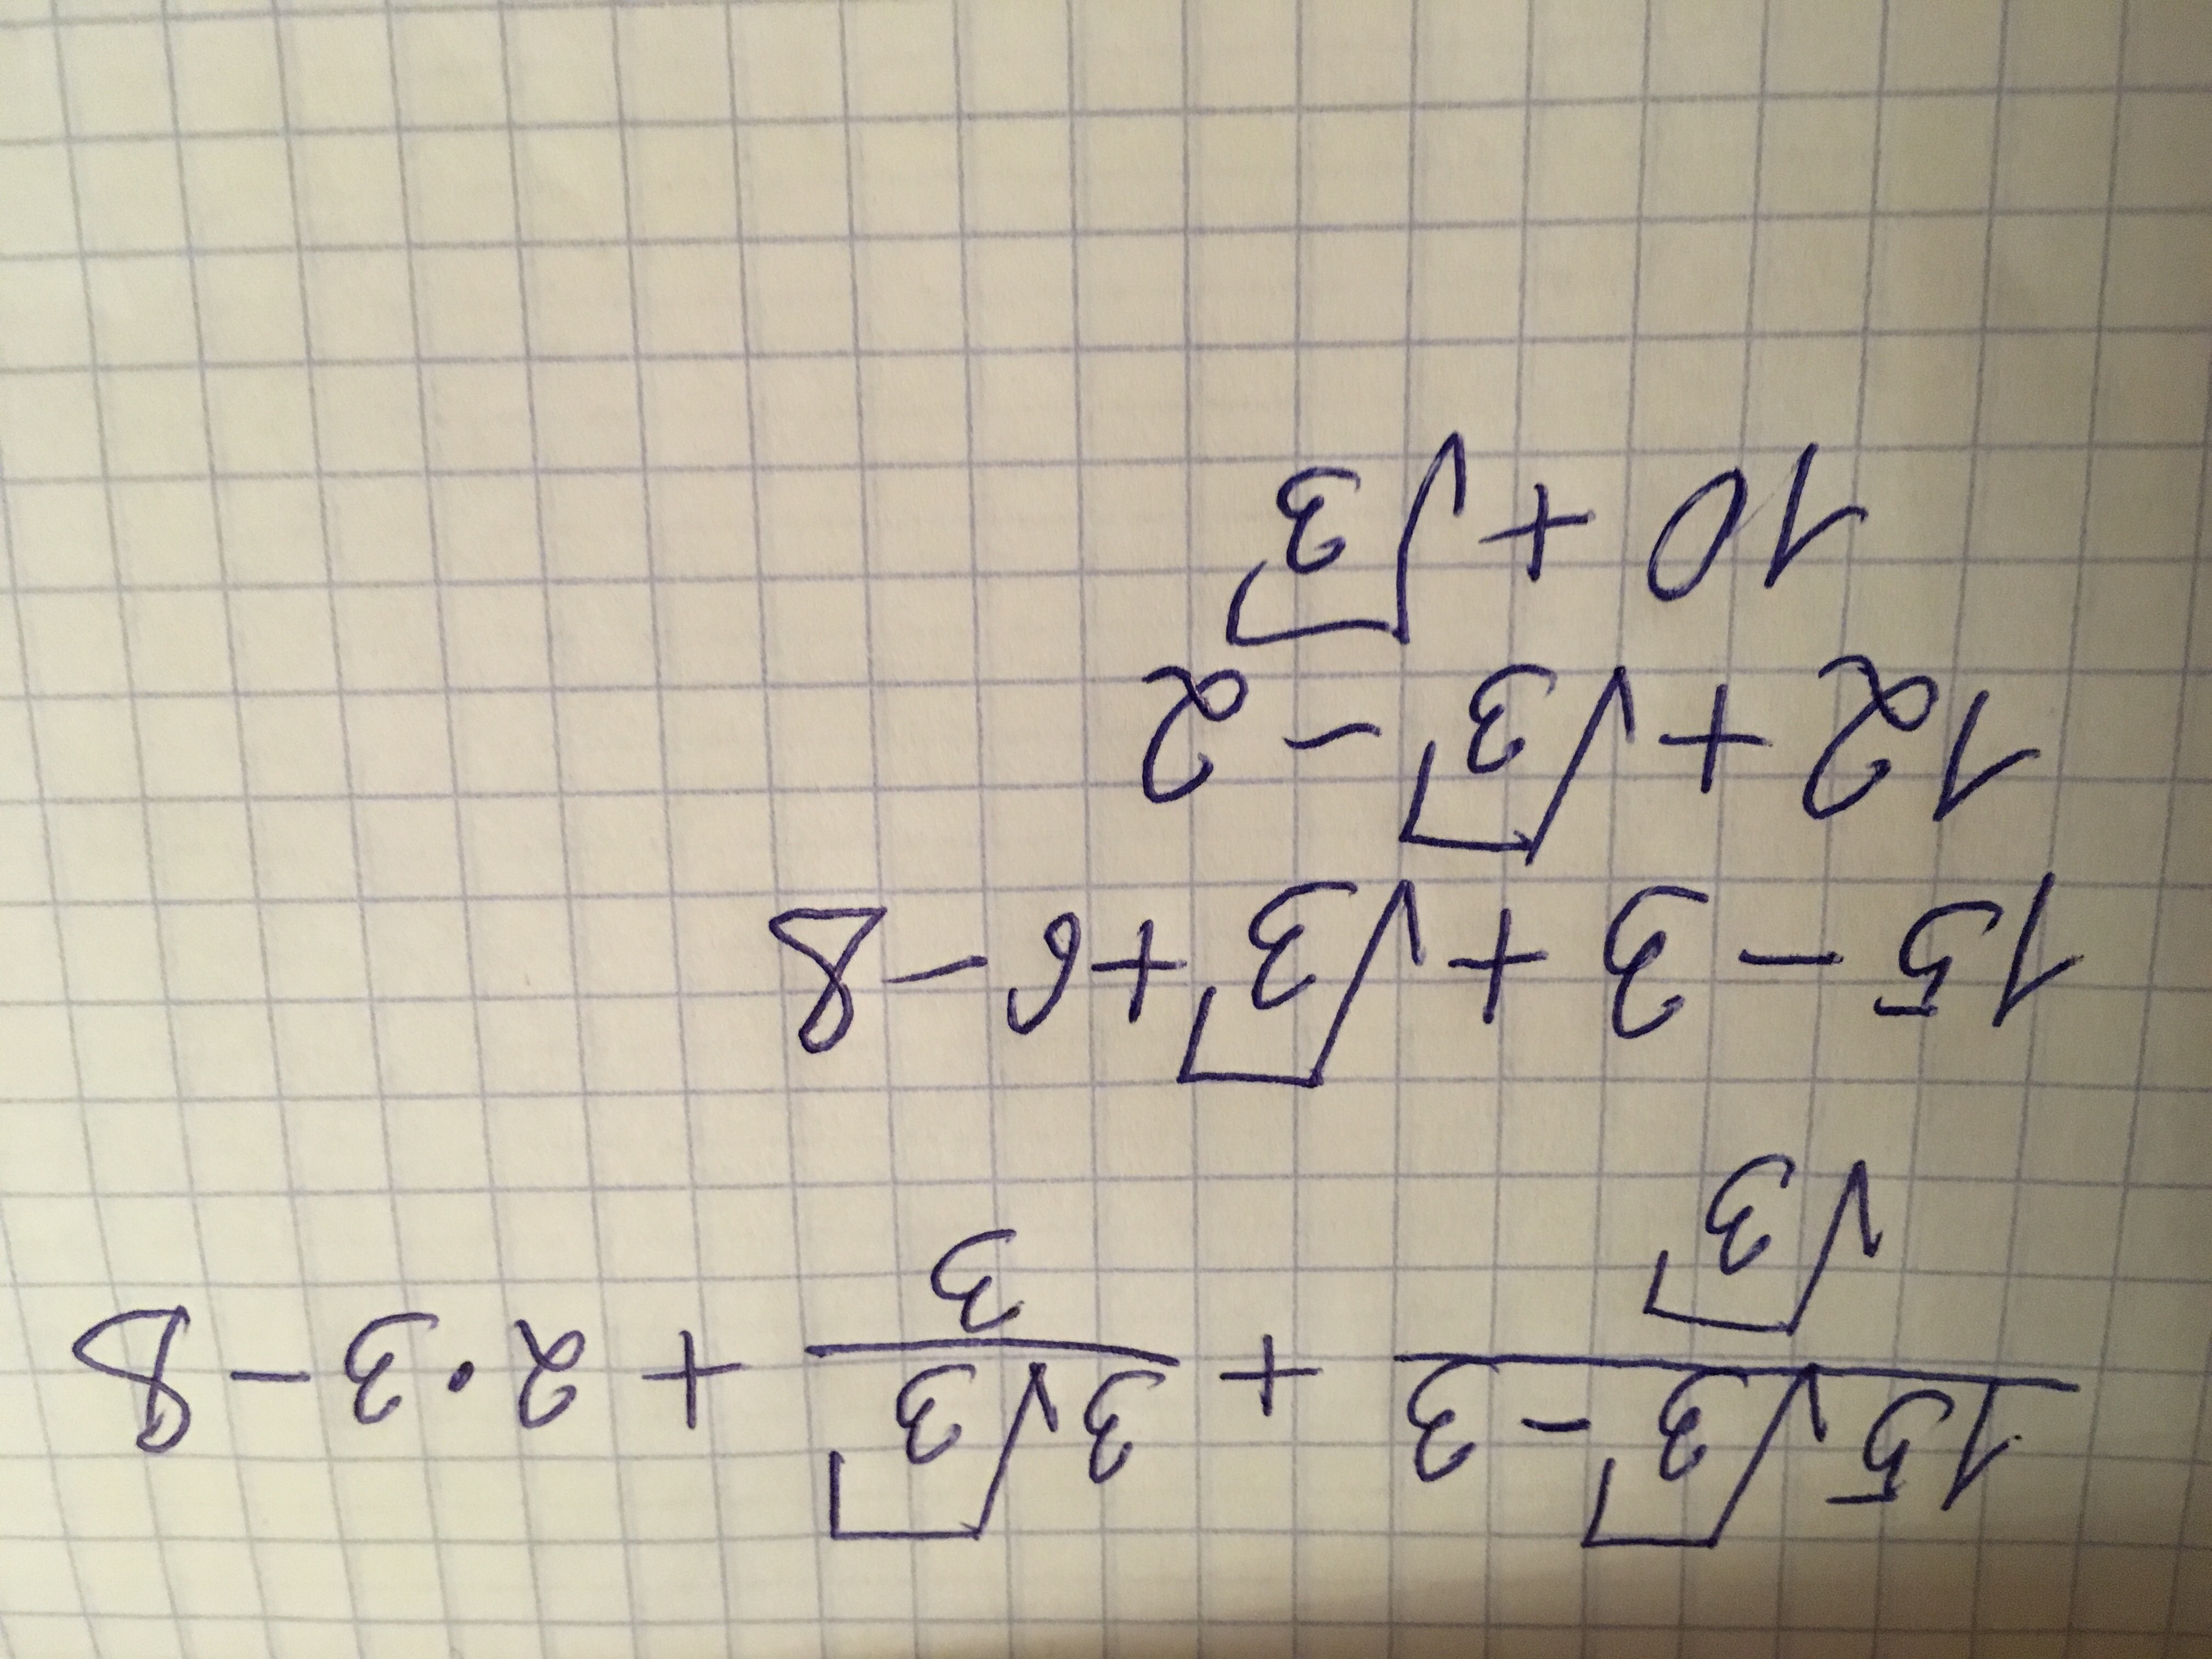 (15√3 - 3)/√3 + 3√3/3 + 2·3 - 8
15 - 3 + √3 + 6 - 8
12 + √3 - 2
10 + √3